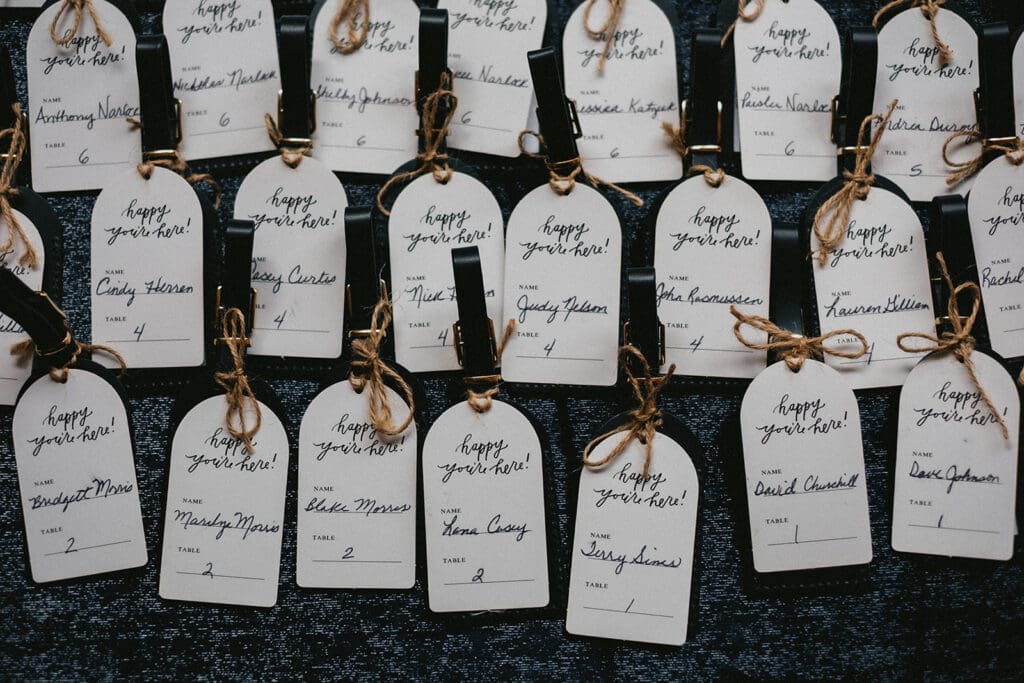 happy
you're here!
NAME
Anthony Narlock
TABLE
6
happy
you're here!
NAME
Nicholas Narlock
TABLE
6
happy
you're here!
NAME
Shelby Johnson
TABLE
6
happy
you're here!
NAME
Narlock
TABLE
6
happy
you're here!
NAME
TABLE
6
happy
you're here!
NAME
Paisley Narlock
TABLE
6
happy
you're here!
NAME
Andrea Duroy
TABLE
5
happy
you're here!
NAME
Cindy Herren
TABLE
4
happy
you're here!
NAME
Casey Curtis
TABLE
4
happy
you're here!
NAME
Nick
TABLE
4
happy
you're here!
NAME
Judy Nelson
TABLE
4
happy
you're here!
NAME
John Rasmussen
TABLE
4
happy
you're here!
NAME
Lauren Gilliam
TABLE
4
happy
you're here!
NAME
Rachel
TABLE
happy
you're here!
NAME
Bridgett Morris
TABLE
2
happy
you're here!
NAME
Marilyn Morris
TABLE
2
happy
you're here!
NAME
Blake Morris
TABLE
2
happy
you're here!
NAME
Lana Casey
TABLE
2
happy
you're here!
NAME
Terry Sims
TABLE
1
happy
you're here!
NAME
David Churchill
TABLE
1
happy
you're here!
NAME
Dave Johnson
TABLE
1